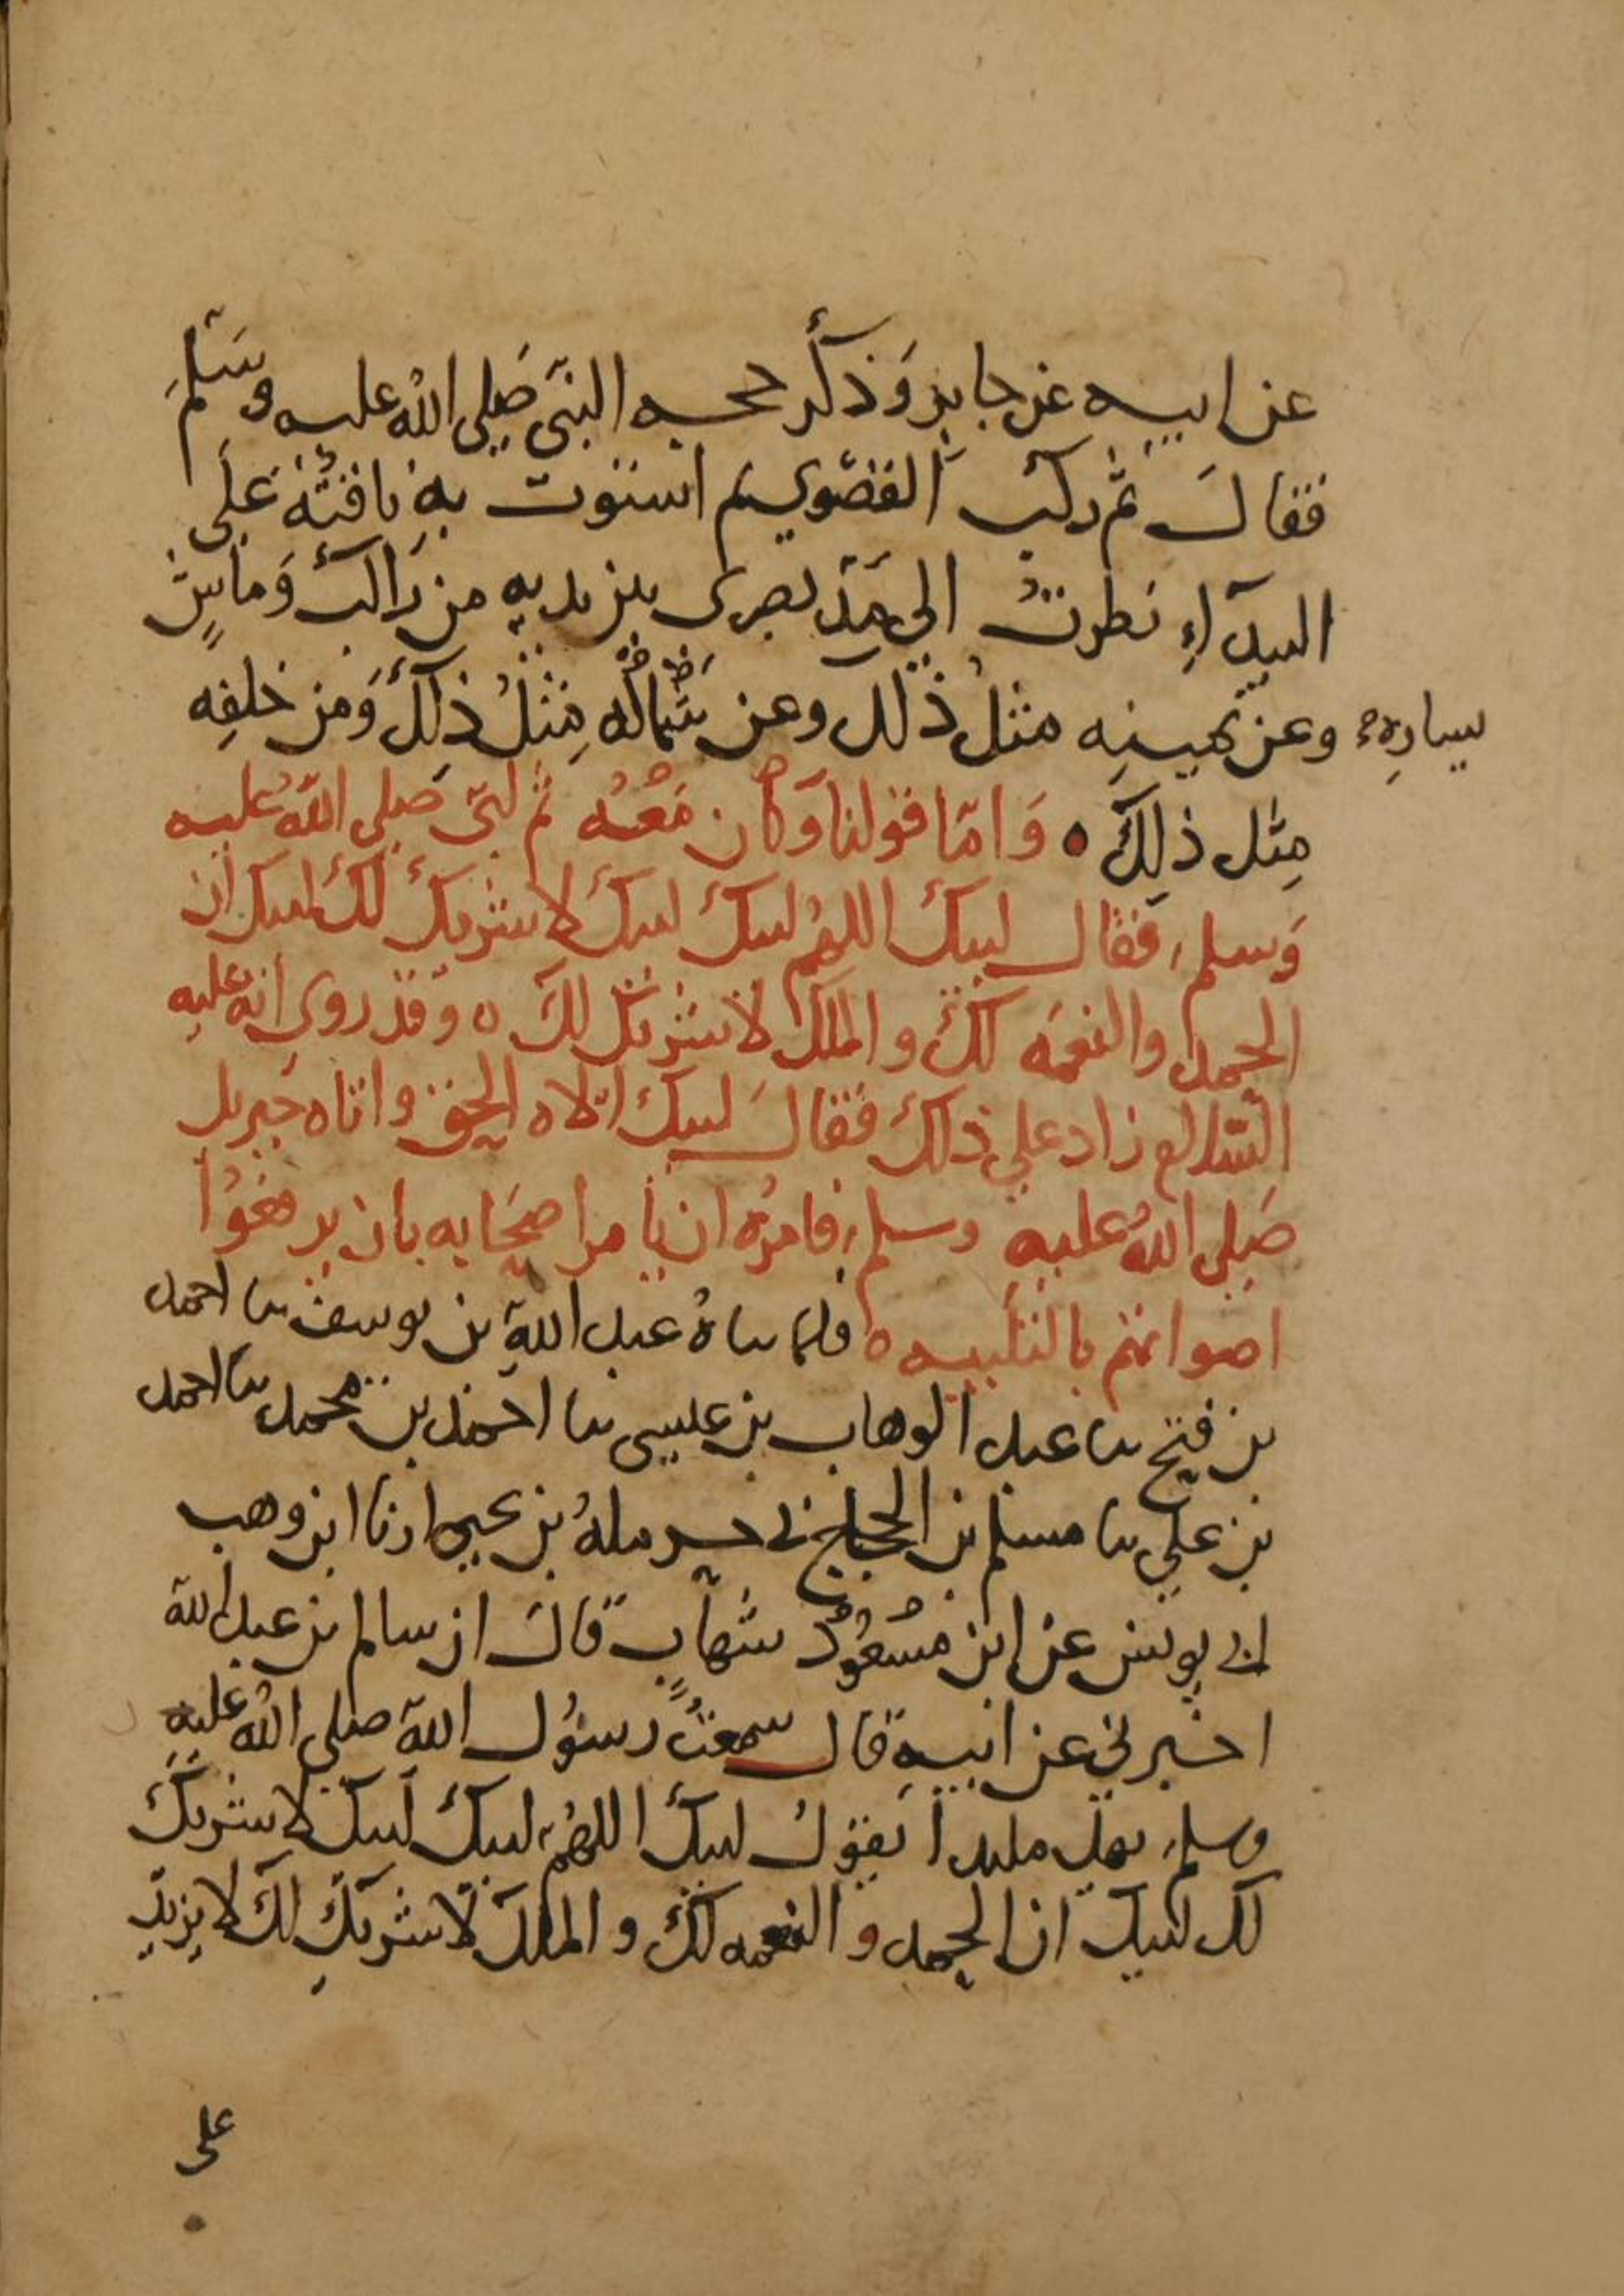 عن ابيه عن جابر وَذكر حجه النبي صَلى الله عليه وسَلمَ
فقال ثم ركب القصوي ثم استوت بهِ ناقتُه على
البيدآءِ نظرتُ الى مَدّ بصرى بين يديهِ من رَاكب وَماشٍ
وعن يمينهِ مثل ذلك وعن شماله مِثلُ ذلكَ وَمن خلفِه
يسارهِ
مِثل ذلِكَ ه وَامّا قولنا وَكان مَعهُ ثم لبى صَلى الله عليه
وَسلم فقال لبيك اللهم لبيك لبيك لا شريك لك لبيك ان
الحمد والنعمه لك والملك لا شريك لك ه وقد روى انه عليه
السّلام زاد على ذلك فقالَ لبيك الاه الحق واتاه جبريل
صَلى اللهُ عليه وسلم فامرهُ ان يامر اصحَابه بان يرفعُوا
اصواتهم بالتلبيه ه فلما ناهُ عبد اللهِ بن يوسف نا احمد
بن فتح نا عبد الوهاب بن عيسى نا احمد بن محمد نا احمد
بن علي نا مسلم بن الحجاج ني حرملهُ بن يحيى ارنا ابن وهب
اني يونس عن ابن مسْعُودٍ شهابٍ قال ان سالم بن عبد الله
اخبرني عن ابيهِ قال سمعتُ رسُول الله صلى الله عليه
وسلم يهل ملبدا يقولُ لبيك اللهم لبيك لبيك لا شريكَ
لك لبيك ان الحمد والنعمه لكَ والملك لا شريكَ لكَ لا يزيد
على